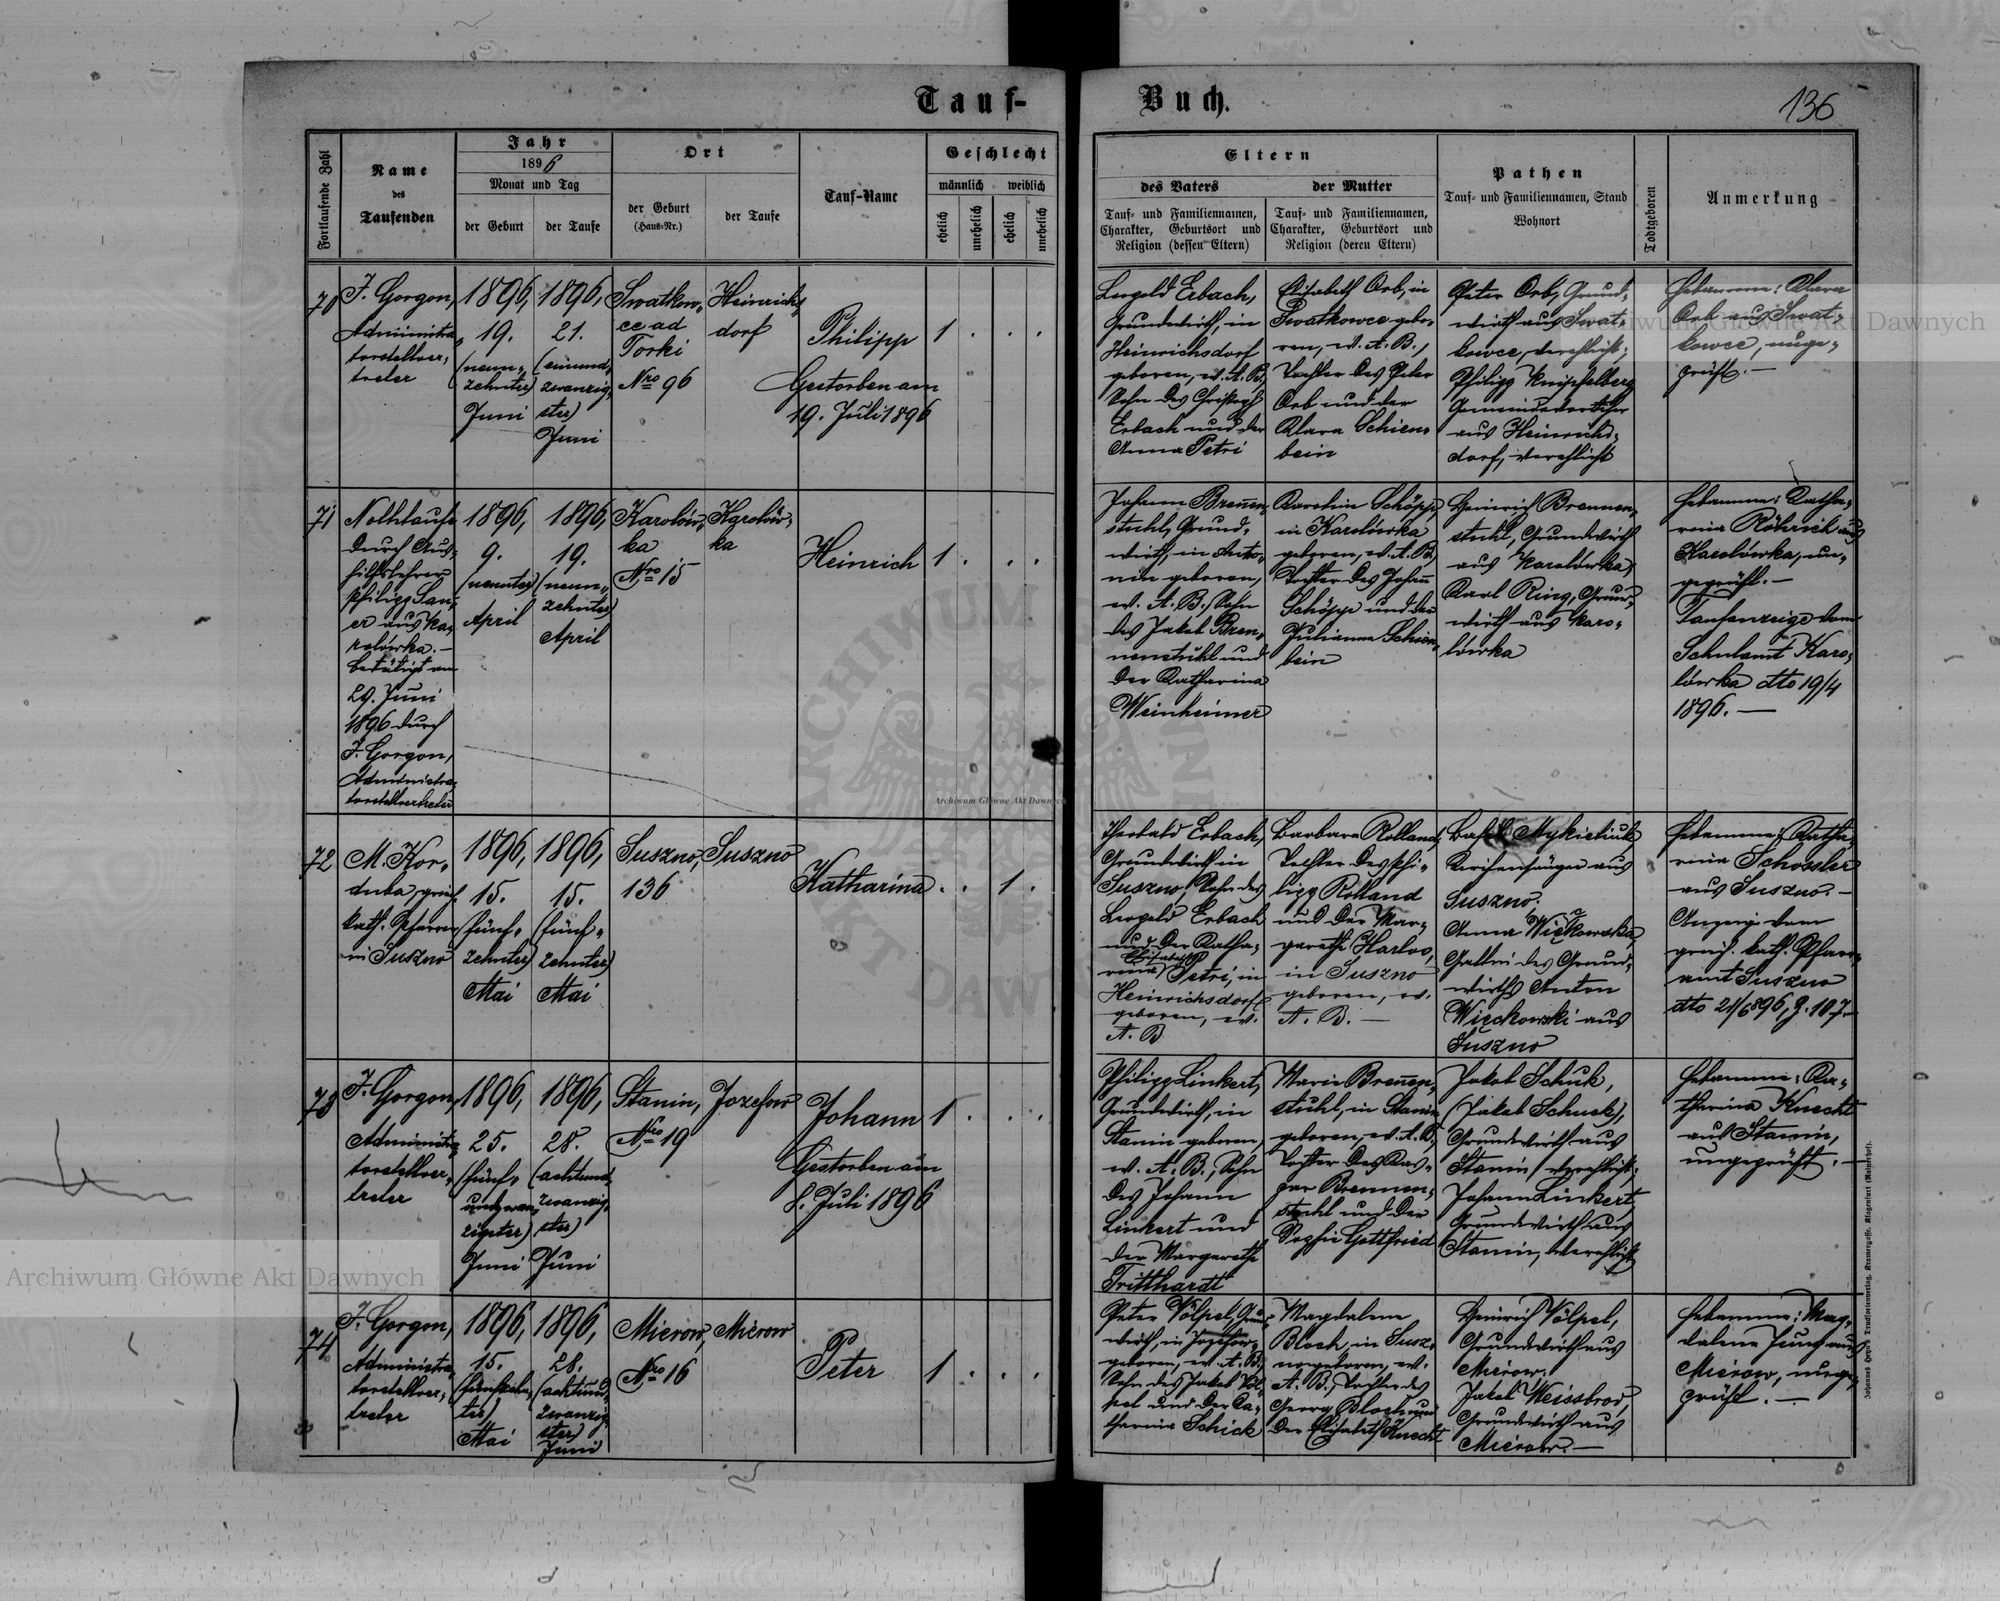 Tauf-
Buch.
136
Fortlaufende Zahl
Name
des
Taufenden
Jahr
1896
Monat und Tag
der Geburt
der Taufe
Ort
der Geburt
(Haus-Nr.)
der Taufe
Tauf-Name
Geschlecht
männlich
weiblich
ehelich
unehelich
ehelich
unehelich
Eltern
des Vaters
Tauf- und Familiennamen,
Charakter, Geburtsort und
Religion (dessen Eltern)
der Mutter
Tauf- und Familiennamen,
Charakter, Geburtsort und
Religion (deren Eltern)
Pathen
Tauf- und Familiennamen, Stand
Wohnort
Todtgeboren
Anmerkung
70
J. Gorgon,
Administra-
torstellver-
treter
1896,
19.
(neun-
zehnter)
Juni
1896,
21.
(einund-
zwanzig-
ster)
Juni
Swatkow-
ce ad
Torki
Nro 96
Heinrichs-
dorf
Philipp
Gestorben am
19. Juli 1896
1 . . .
Leopold Erbach,
Grundwirth, in
Heinrichsdorf
geboren, ev. A. B.,
Sohn des Christoph
Erbach und der
Anna Petri
Elisabeth Orb, in
Swatkowce gebo-
ren, ev. A. B.,
Tochter des Peter
Orb und der
Klara Schien-
bein
Peter Orb, Grund-
wirth aus Swat-
kowce, verehlicht;
Philipp Knipfelberg
Gemeindevorsteher
aus Heinrichs-
dorf, verehlicht
Hebamme: Klara
Orb aus Swat-
kowce, unge-
prüft. —
71
Nothtaufe
durch Aus-
hilfslehrer
Philipp Sau-
er aus Ka-
rolówka. —
Bestätigt am
29. Juni
1896 durch
J. Gorgon,
Administra-
torstellvertreter
1896,
9.
(neunter)
April
1896,
19.
(neun-
zehnter)
April
Karolów-
ka
Nro 15
Karolów-
ka
Heinrich
1 . . .
Johann Brennen-
stuhl, Grund-
wirth, in Anto-
nin geboren,
ev. A. B., Sohn
des Jakob Bren-
nenstuhl und
der Katharina
Weinheimer
Karolin Schöpp,
in Karolówka
geboren, ev. A. B.,
Tochter des Johann
Schöpp und der
Julianna Schien-
bein
Heinrich Brennen-
stuhl, Grundwirth
aus Karolówka,
Karl Ring, Grund-
wirth aus Karo-
lówka
Hebamme: Katha-
rina Röhrich aus
Karolówka, un-
geprüft. —
Taufanzeige vom
Schulamt Karo-
lówka dto 19/4
1896. —
72
M. Kor-
duba, griech.
kath. Pfarrer
in Suszno
1896,
15.
(fünf-
zehnter)
Mai
1896,
15.
(fünf-
zehnter)
Mai
Suszno,
136
Suszno
Katharina
. . 1 .
Theobald Erbach,
Grundwirth in
Suszno, Sohn des
Leopold Erbach
und der Katha-
Elisabeth
rina) Petri, in
Heinrichsdorf
geboren, ev.
A. B.
Barbara Rolland,
Tochter des Phi-
lipp Rolland
und der Mar-
garethe Harlos,
in Suszno
geboren, ev.
A. B. —
Basil Mykietiuk
Kirchensänger aus
Suszno;
Anna Więckowska,
Gattin des Grund-
wirths Anton
Więckowski aus
Suszno
Hebamme: Katha-
rina Schossler
aus Suszno. —
Anzeige vom
griech. kath. Pfarr-
amt Suszno
dto 21/6 896, Z. 107. —
73
J. Gorgon,
Administra-
torstellver-
treter
1896,
25.
(fünf-
undzwan-
zigster)
Juni
1896,
28.
(achtund-
zwanzig-
ster)
Juni
Stanin,
Nro 19
Jozefow
Johann
Gestorben am
8. Juli 1896
1 . . .
Philipp Linkert,
Grundwirth, in
Stanin geboren,
ev. A. B., Sohn
des Johann
Linkert und
der Margarethe
Tritthardt
Marie Brennen-
stuhl, in Stanin
geboren, ev. A. B.,
Tochter des Kas-
par Brennen-
stuhl und der
Sophie Gottfried
Jakob Schuk,
(Jakob Schuck),
Grundwirth aus
Stanin, verehlicht;
Johann Linkert
Grundwirth aus
Stanin, verehlicht
Hebamme: Ka-
tharina Knecht
aus Stanin,
ungeprüft. —
74
J. Gorgon,
Administra-
torstellver-
treter
1896,
15.
(fünfzehn-
ter)
Mai
1896,
28.
(achtund-
zwanzig-
ster)
Juni
Mierow,
Nro 16
Mierow
Peter
1 . . .
Peter Völpel, Grund-
wirth, in Jozefow
geboren, ev. A. B.,
Sohn des Jakob Völ-
pel und der Ka-
tharina Schick
Magdalene
Bloch, in Susz-
no geboren, ev.
A. B., Tochter des
Georg Bloch und
der Elisabeth Knecht
Heinrich Völpel,
Grundwirth aus
Mierow;
Jakob Weissbrod,
Grundwirth aus
Mierow. —
Hebamme: Mag-
dalena Jung aus
Mierow, unge-
prüft. —
Johannes Heyn's Drucksortenverlag, Kramergasse, Klagenfurt (Rainerhof).
Archiwum Główne Akt Dawnych
Archiwum Główne Akt Dawnych
Archiwum Główne Akt Dawnych